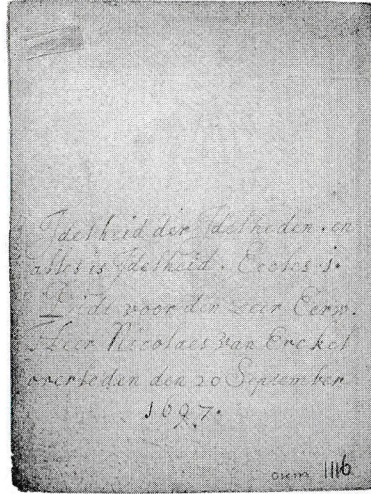 Ydelheid der Ydelheden. en
alles is Ydelheid. Eccles. 1.
Bidt voor den zeer Eerw.
Heer Nicolaes van Erckel
overleden den 20 September
1697.
1116